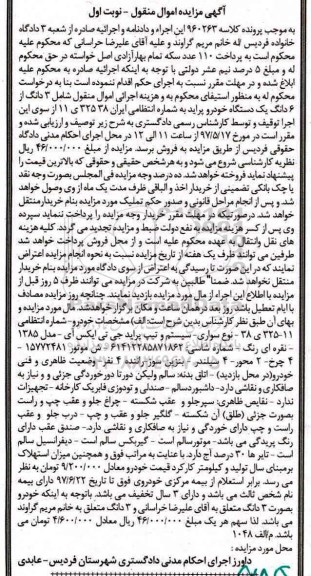 آگهی مزایده اموال منقول - نوبت اول
به موجب پرونده کلاسه ۹۶۰۲۶۳ این اجراء و دادنامه و اجرائیه صادره از شعبه ۳ دادگاه
خانواده فردیس له خانم مریم گراوند و علیه آقای علیرضا خراسانی که محکوم علیه
محکوم است به پرداخت ۱۱۰ عدد سکه تمام بهارآزادی اصل خواسته در حق محکوم
له و مبلغ ۵ درصد نیم عشر دولتی با توجه به اینکه اجرائیه صادره به محکوم علیه
ابلاغ شده و در مهلت مقرر نسبت به اجرای حکم اقدام ننموده است بنا به درخواست
محکوم له به منظور استیفای محکوم به و هزینه اجرائی اموال منقول شامل ۳ دانگ از
۶ دانگ یک دستگاه خودرو پراید به شماره انتظامی ایران ۳۸ ۳۲۵ ی ۱۱ از سوی این
اجرا توقیف و توسط کارشناس رسمی دادگستری به شرح زیر توصیف و ارزیابی شده و
مقرر است در مورخ ۹۷/۵/۱۷ از ساعت ۱۱ الی ۱۲ در محل اجرای احکام مدنی دادگاه
حقوقی فردیس از طریق مزایده به فروش برسد. مزایده از مبلغ ۴۶/۰۰۰/۰۰۰ ریال
نظریه کارشناسی شروع می شود و به هرشخص حقیقی و حقوقی که بالاترین قیمت را
پیشنهاد نماید فروخته خواهد شد. ده درصد وجه مزایده فی المجلس بصورت وجه نقد
یا چک بانکی تضمینی از خریدار اخذ و الباقی ظرف مدت یک ماه از وی وصول خواهد
شد و پس از انجام مراحل قانونی و صدور حکم تملیک مورد مزایده بنام خریدار منتقل
خواهد شد. درصورتیکه در مهلت مقرر خریدار وجه مزایده را پرداخت ننماید سپرده
وی پس از کسر هزینه مزایده به نفع دولت ضبط و مزایده تجدید می گردد. کلیه هزینه
های نقل وانتقال به عهده محکوم علیه است و از محل فروش پرداخت خواهد شد
طرفین می توانند ظرف یک هفته از تاریخ مزایده نسبت به نحوه انجام مزایده اعتراض
نمایند که در این صورت تا رسیدگی به اعتراض از سوی دادگاه مورد مزایده بنام خریدار
منتقل نخواهد شد. ضمنا" طالبین به شرکت در مزایده می توانند ظرف ۵ روز قبل از
مزایده با اطلاع این اجراء از مال مورد مزایده بازدید نمایند. چنانچه روز مزایده مصادف
با ایام تعطیل باشد روز بعد در همان ساعت و مکان برگزار خواهدشد. مال مورد مزایده و
بهای آن طبق نظر کارشناس بدین شرح است: الف) مشخصات خودرو - شماره انتظامی
۱۱-۳۲۵ ی ۳۸ - نوع سواری- سیستم و تیپ پراید جی تی ایکس آی - مدل ۱۳۸۵
- نقره ای رنگ - شماره شاسی: ۶۱۴۱۲۲۸۵۸۷۱۸۶۲ ش موتور ۱۵۷۷۲۴۸۱ -
۴ چرخ- ۲ محور- ۴ سیلندر - بنزین سوز راننده ۴ نفر - وضعیت ظاهری و فنی
خودرو(در محل بازدید) - اتاق بدنه: سالم ولیکن دورتا دور خوردگی جزئی و و نیاز به
صافکاری و نقاشی دارد- داشبوردسالم - صندلی و تودوزی فابریک کارخانه - تجهیزات
ندارد - نقایص ظاهری: سپرجلو و عقب شکسته - چراغ جلو و عقب چپ و راست
بصورت جزئی (طلق) آن شکسته - گلگیر جلو و عقب و چپ - درب جلو و عقب
راست و چپ دارای خوردگی و نیاز به صافکاری و نقاشی دارد- صندق عقب دارای
رنگ پریدگی می باشد- موتورسالم است - گیربکس سالم است - دیفرانسیل سالم
است - تایر ها ۳۰ درصد آج دارد. با عنایت به مراتب فوق و همچنین میزان استهلاک
برمبنای سال تولید و کیلومتر کارکرد قیمت خودرو معادل ۹/۲۰۰/۰۰۰ تومان به نظر
می رسد. برابر استعلام از بیمه مرکزی خودروی فوق تا تاریخ ۹۷/۶/۲۲ دارای بیمه
نام شخص ثالث می باشد و دارای ۳ سال تخفیف می باشد. باتوجه به اینکه خودرو
بصورت ۳ دانگ متعلق به آقای علیرضا خراسانی و ۳ دانگ متعلق به خانم مریم گراوند
می باشد. لذا سهم هر یک مبلغ ۴۶/۰۰۰/۰۰۰ ریال معادل ۴/۶۰۰/۰۰۰ تومان می
باشد. م‌الف ۱۰۴۸
محل مورد مزایده :
دادورز اجرای احکام مدنی دادگستری شهرستان فردیس- عابدی